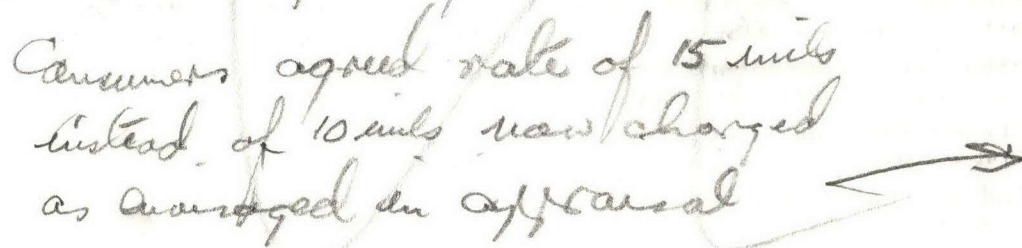 Consumers agreed rate of 15 mils
instead of 10 mils now charged
as envisaged in appraisal